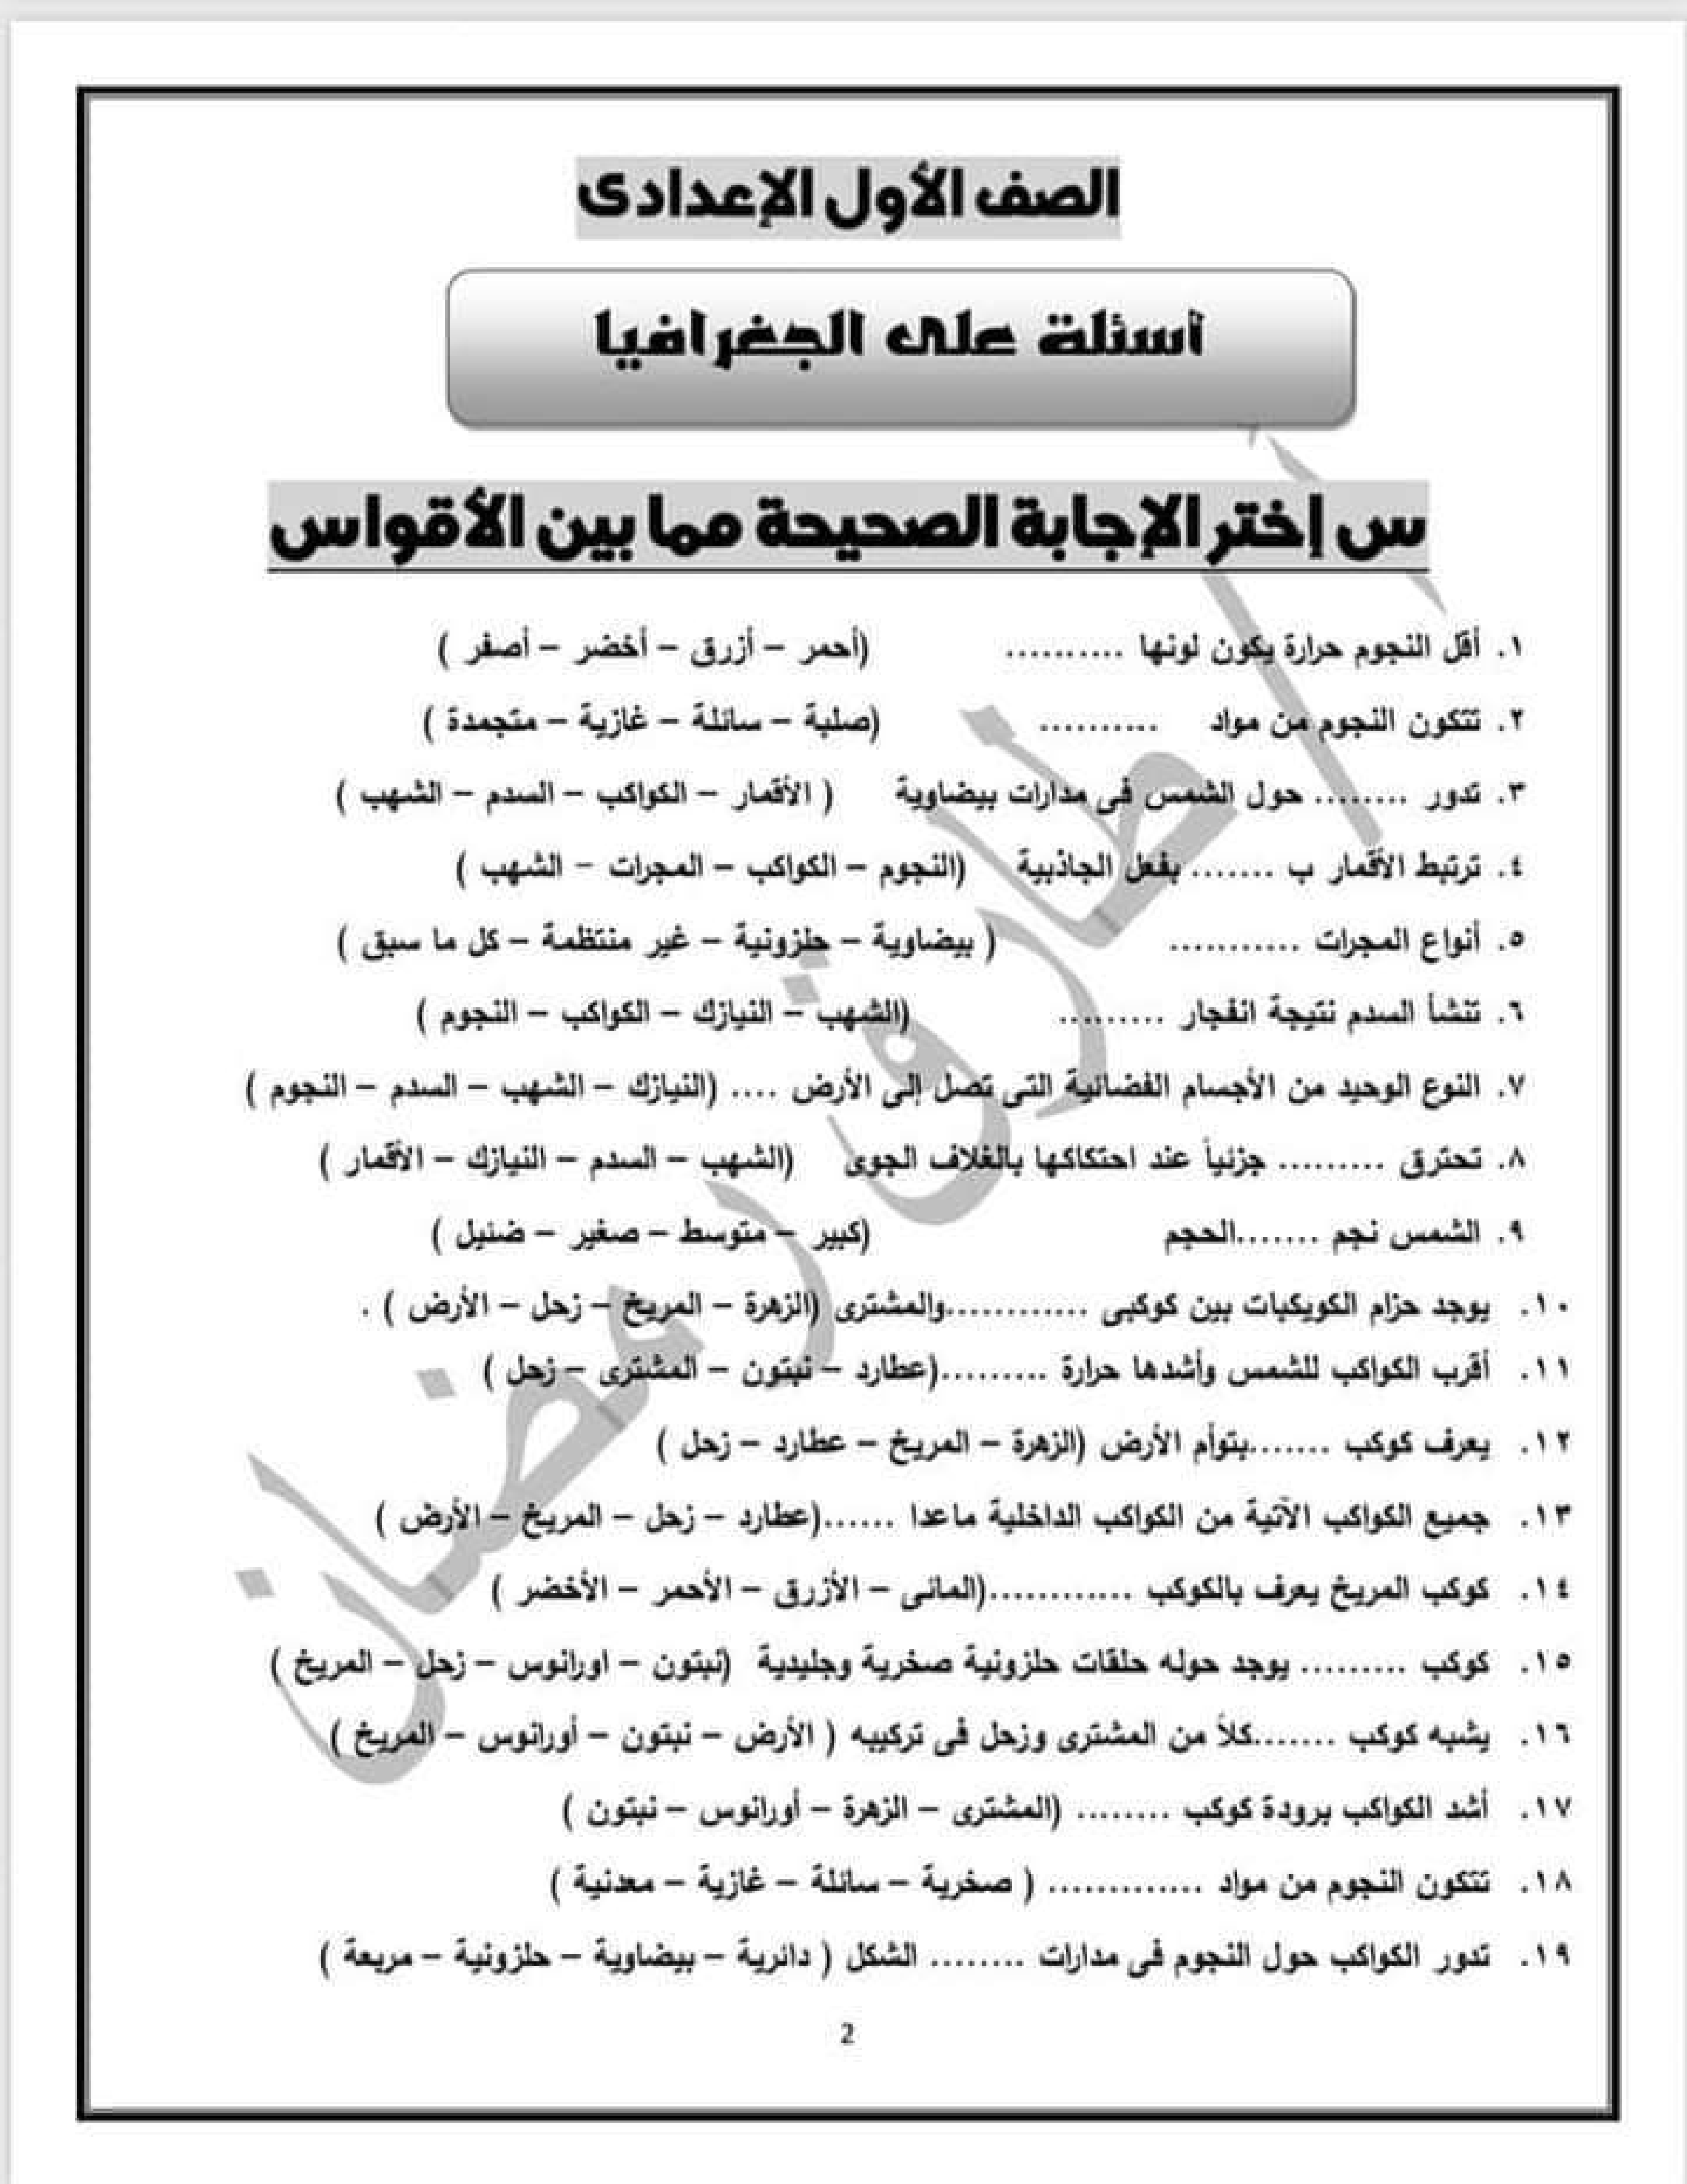 الصف الأول الإعدادى
أسئلة على الجغرافيا
س إختر الإجابة الصحيحة مما بين الأقواس
١. أقل النجوم حرارة يكون لونها .......... (أحمر – أزرق – أخضر – أصفر )
٢. تتكون النجوم من مواد .......... (صلبة – سائلة – غازية – متجمدة )
٣. تدور ........ حول الشمس فى مدارات بيضاوية ( الأقمار – الكواكب – السدم – الشهب )
٤. ترتبط الأقمار ب ....... بفعل الجاذبية (النجوم – الكواكب – المجرات – الشهب )
٥. أنواع المجرات ........... ( بيضاوية – حلزونية – غير منتظمة – كل ما سبق )
٦. تنشأ السدم نتيجة انفجار ......... (الشهب – النيازك – الكواكب – النجوم )
٧. النوع الوحيد من الأجسام الفضائية التى تصل إلى الأرض .... (النيازك – الشهب – السدم – النجوم )
٨. تحترق ......... جزئياً عند احتكاكها بالغلاف الجوى (الشهب – السدم – النيازك – الأقمار )
٩. الشمس نجم .......الحجم (كبير – متوسط – صغير – ضئيل )
١٠. يوجد حزام الكويكبات بين كوكبى ............والمشترى (الزهرة – المريخ – زحل – الأرض ) .
١١. أقرب الكواكب للشمس وأشدها حرارة .........(عطارد – نبتون – المشترى – زحل )
١٢. يعرف كوكب .......بتوأم الأرض (الزهرة – المريخ – عطارد – زحل )
١٣. جميع الكواكب الآتية من الكواكب الداخلية ماعدا ......(عطارد – زحل – المريخ – الأرض )
١٤. كوكب المريخ يعرف بالكوكب ............(المائى – الأزرق – الأحمر – الأخضر )
١٥. كوكب ......... يوجد حوله حلقات حلزونية صخرية وجليدية (نبتون – اورانوس – زحل – المريخ )
١٦. يشبه كوكب .......كلاً من المشترى وزحل فى تركيبه ( الأرض – نبتون – أورانوس – المريخ )
١٧. أشد الكواكب برودة كوكب ........ (المشترى – الزهرة – أورانوس – نبتون )
١٨. تتكون النجوم من مواد ............. ( صخرية – سائلة – غازية – معدنية )
١٩. تدور الكواكب حول النجوم فى مدارات ........ الشكل ( دائرية – بيضاوية – حلزونية – مربعة )
2
أ / طارق رمضان